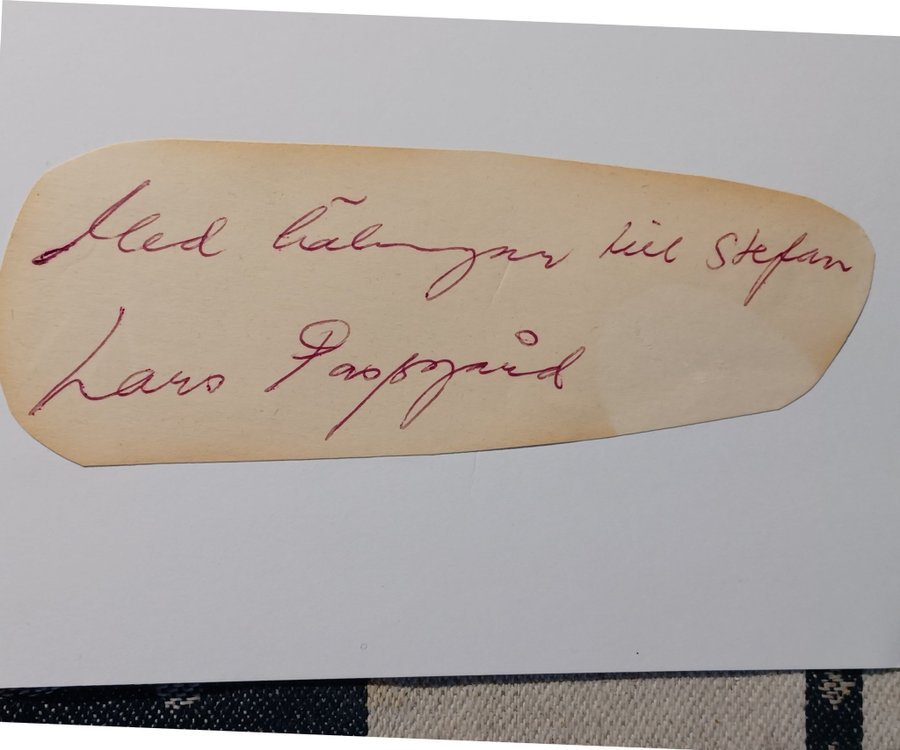 Med hälningar till Stefan
Lars Passgård